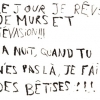 LE JOUR JE RÊV
DE MURS ET
ÉVASION!!!
LA NUIT, QUAND TU
N'ES PAS LÀ, JE FAI
DES BÊTISES !!!